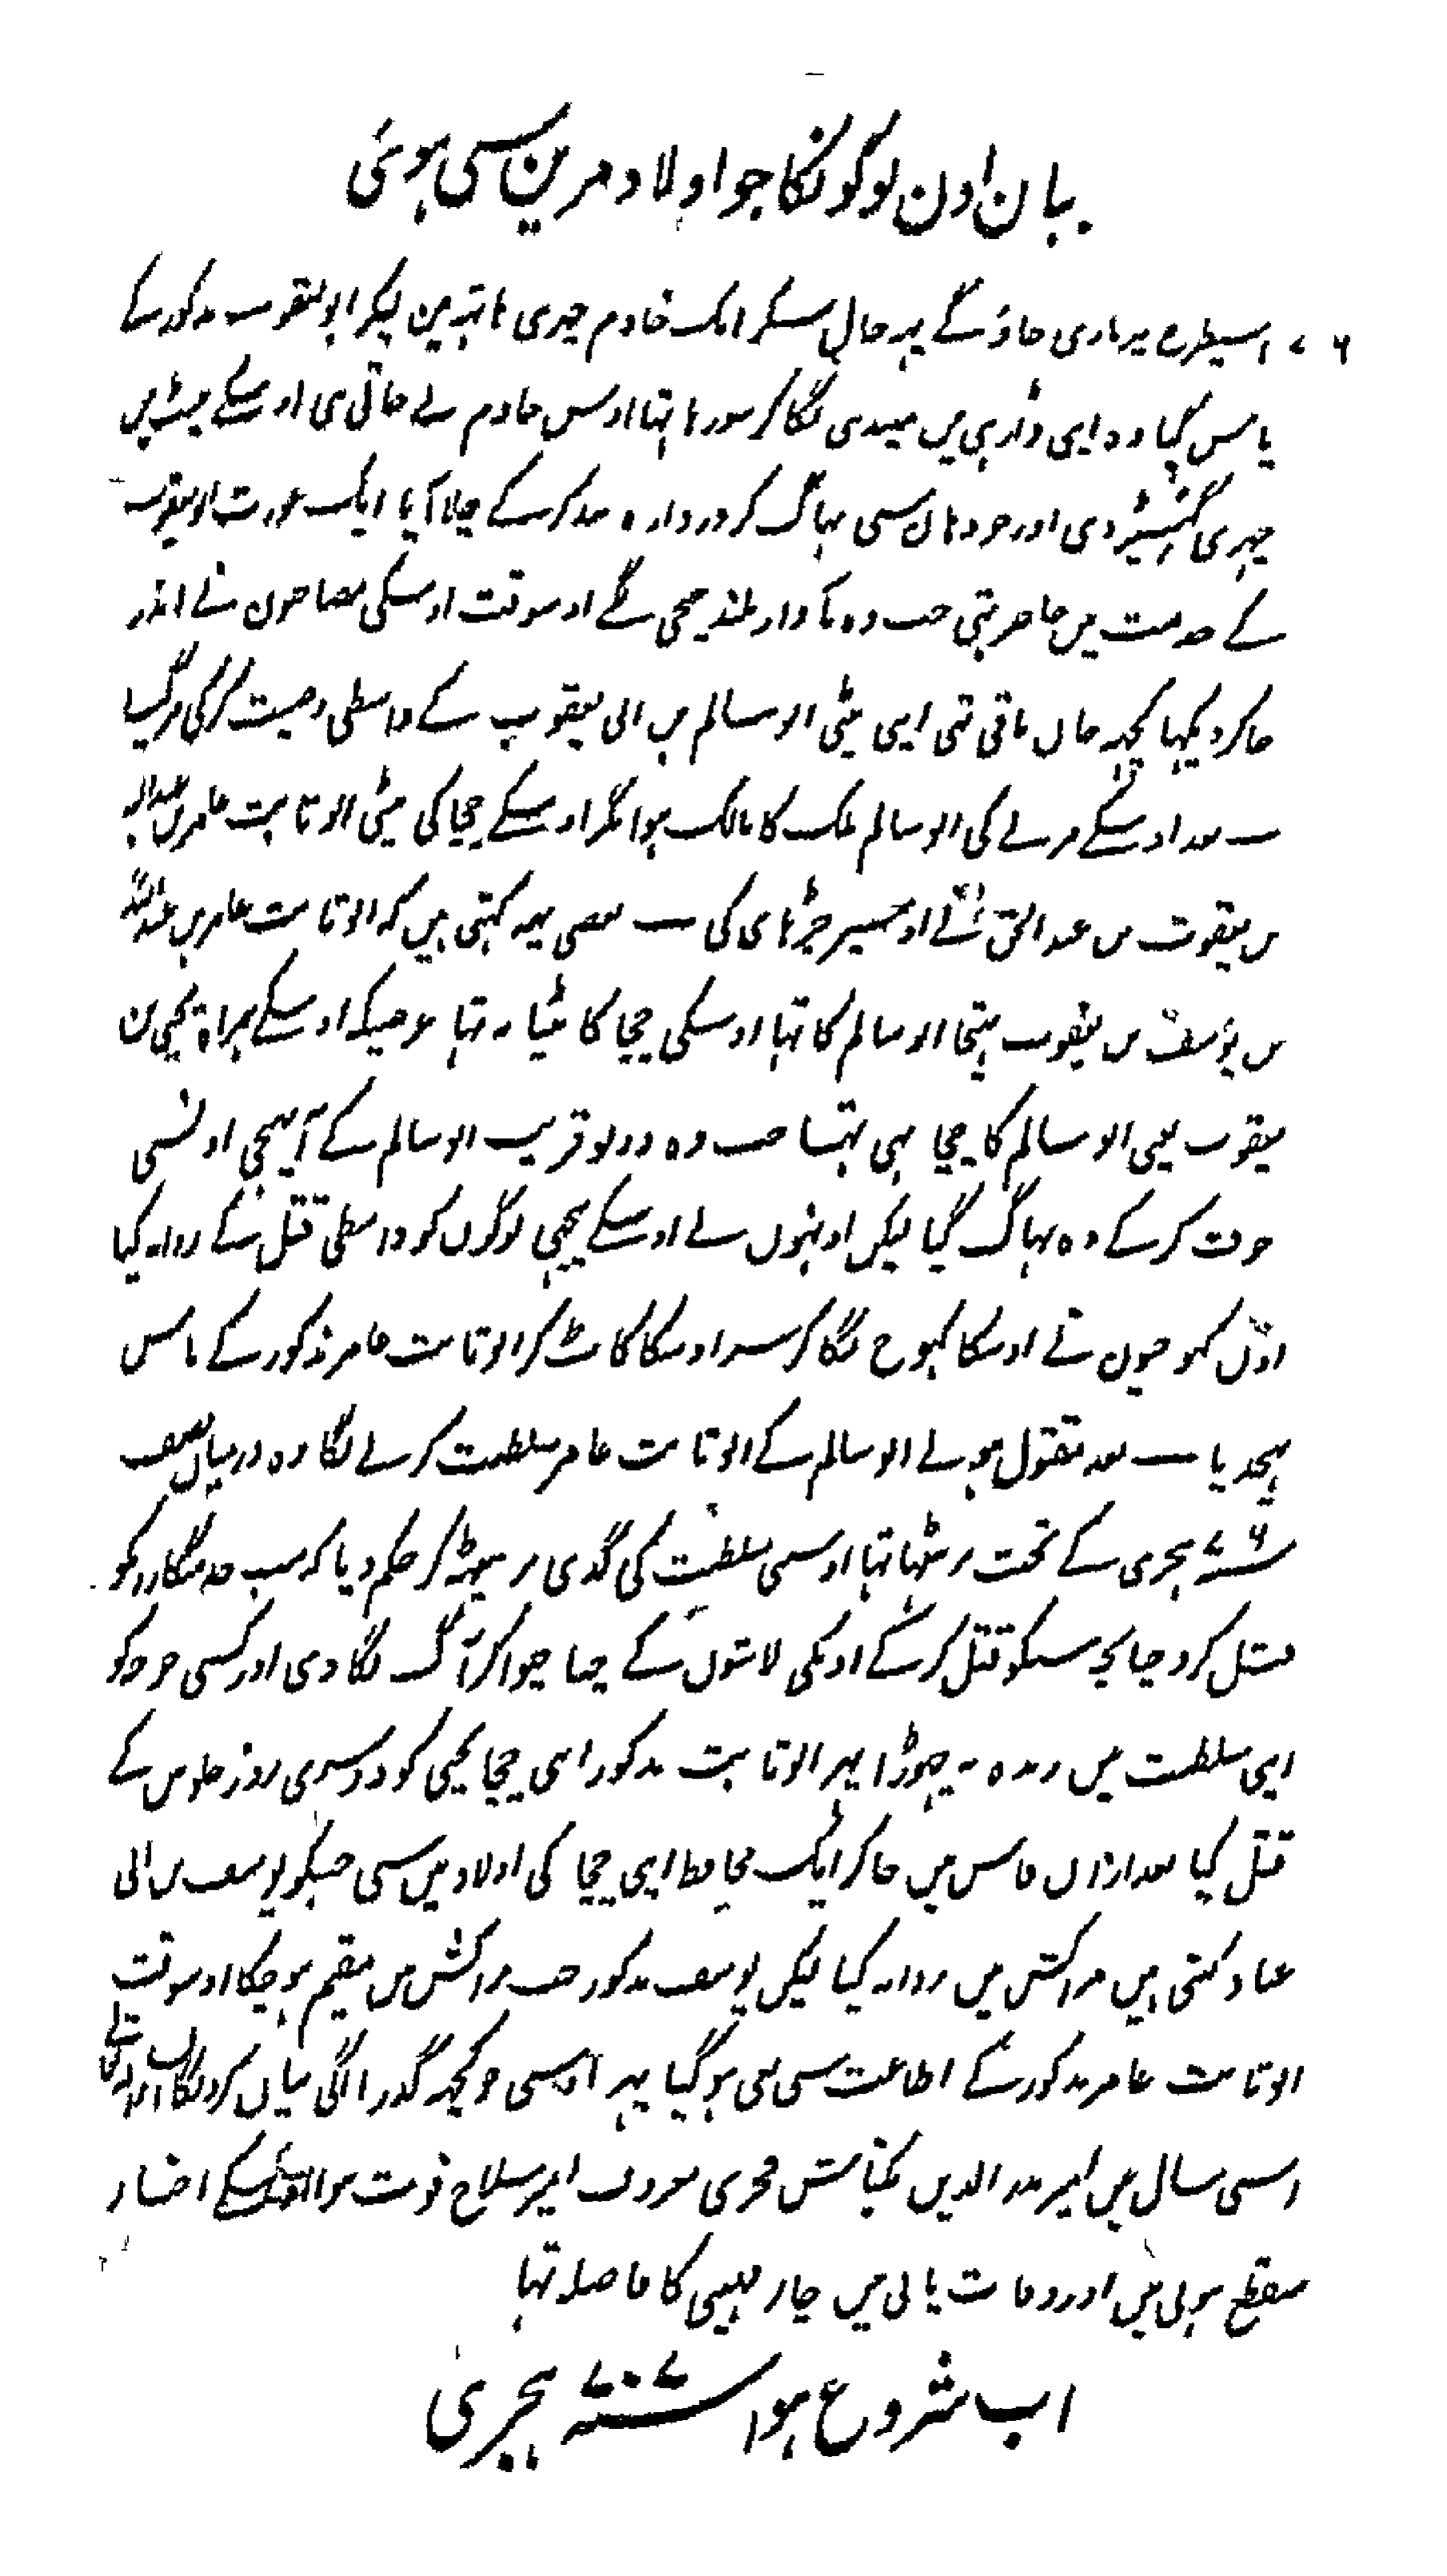 بیان اون لوگونکا جو اولاد مرین سی ہوئی
۷۰۶ اسیطرح یہ ماری جاؤگے یہہ حال سنکر ایک خادم چہری ہاتہہ مین لیکر ابو یعقوب مذکور کے
پاس گیا وہ اپنی داڑہی میں میندی لگا کر سو رہا تہا اوس خادم نے جاتی ہی اوسکے پیٹ میں
چہری گہسیڑ دی اور خود وہان سی بہاگ کر دروازہ بند کر کے چلا آیا ایک عورت ابو یعقوب
کے خدمت میں حاضر تہی جب وہ بآواز بلند چیخی اوسوقت اوسکی مصاحبون نے اندر
جا کر دیکہا کچہہ جان باقی تہی اپنی بیٹی ابو سالم بن ابی یعقوب کے واسطی وصیت کر کی مر گیا
بعد اوسکے مرنے کی ابو سالم ملک کا مالک ہوا مگر اوسکے چچا کی بیٹی ابو ثابت عامر بن عبداللہ
بن یعقوب بن عبدالحق نے اوسپر چڑہائی کی بعضی یہہ کہتی ہیں کہ ابو ثابت عامر بن عبداللہ
بن یوسف بن یعقوب بہتیجا ابو سالم کا تہا اوسکی چچا کا بیٹا نہ تہا چونکہ اوسکے ہمراہ یحیی بن
یعقوب یعنی ابو سالم کا چچا بہی تہا جب وہ دونو قریب ابو سالم کے آپہنچی اونسی
خوف کر کے وہ بہاگ گیا لیکن اونہوں نے اوسکے پیچہی لوگوں کو واسطی قتل کے روانہ کیا
اون کہوجیون نے اوسکا کہوج لگا کر سر اوسکا کاٹ کر ابو ثابت عامر مذکور کے پاس
بہیجدیا بعد مقتول ہونے ابو سالم کے ابو ثابت عامر سلطنت کرنے لگا وہ درمیان نصف
۷۰۶ ہجری کے تخت پر بیٹہا تہا اوسی سلطنت کی گدی پر بیہٹہ کر حکم دیا کہ سب خدمتگارونکو
قتل کرو چنانچہ سبکو قتل کر کے اونکی لاشوں کے چتا چنوا کر آگ لگا دی اور کسی خوجہ کو
اپنی سلطنت میں زندہ نہ چہوڑا پہر ابو ثابت مذکور اپنی چچا یحیی کو دوسری روز جلوس کے
قتل کیا بعد ازاں فاس میں جا کر ایک محافظ اپنی چچا کی اولاد میں سی جسکو یوسف بن ابی
عباد کہتی ہیں مراکش میں روانہ کیا لیکن یوسف مذکور جب مراکش میں مقیم ہو چکا اوسوقت
ابو ثابت عامر مذکور کے اطاعت سی باغی ہو گیا پہر اوسی جو کچہہ گذرا آگی بیان کرونگا
اسی سال میں امیر بدر الدین بکتاش فخری معروف امیر سلاح فوت ہوا اوسکے اخبار
منقطع ہونی میں اور وفات پانی میں چار مہینی کا فاصلہ تہا
اب شروع ہوا ۷۰۷ ہجری